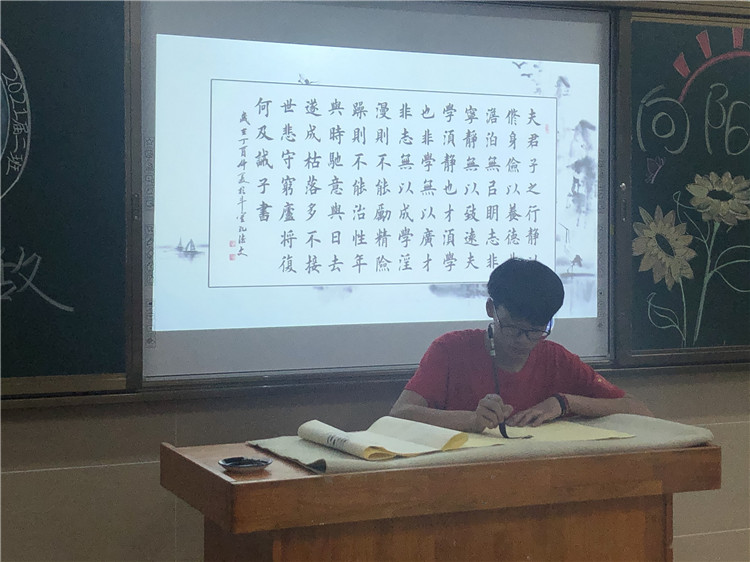 2021届二班
夫君子之行静以
脩身儉以養德非
澹泊無以明志非
寧静無以致遠夫
學須静也才須學
也非學無以廣才
非志無以成學淫
漫則不能勵精險
躁則不能治性年
與時馳意與日去
遂成枯落多不接
世悲守窮廬将復
何及誡子書
丁酉仲夏
向阳